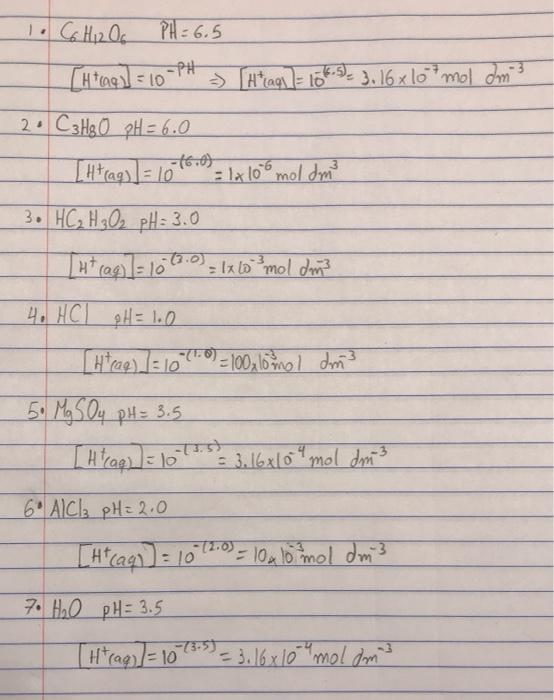 1. C₆H₁₂O₆ PH = 6.5
[H⁺(aq)] = 10⁻ᴾᴴ ⇒ [H⁺(aq)] = 10⁻⁽⁶·⁵⁾ = 3.16 x 10⁻⁷ mol dm⁻³
2. C₃H₈O pH = 6.0
[H⁺(aq)] = 10⁻⁽⁶·⁰⁾ = 1 x 10⁻⁶ mol dm⁻³
3. HC₂H₃O₂ pH = 3.0
[H⁺(aq)] = 10⁻⁽³·⁰⁾ = 1 x 10⁻³ mol dm⁻³
4. HCl pH = 1.0
[H⁺(aq)] = 10⁻⁽¹·⁰⁾ = 100 x 10⁻³ mol dm⁻³
5. MgSO₄ pH = 3.5
[H⁺(aq)] = 10⁻⁽³·⁵⁾ = 3.16 x 10⁻⁴ mol dm⁻³
6. AlCl₃ pH = 2.0
[H⁺(aq)] = 10⁻⁽²·⁰⁾ = 10 x 10⁻³ mol dm⁻³
7. H₂O pH = 3.5
[H⁺(aq)] = 10⁻⁽³·⁵⁾ = 3.16 x 10⁻⁴ mol dm⁻³